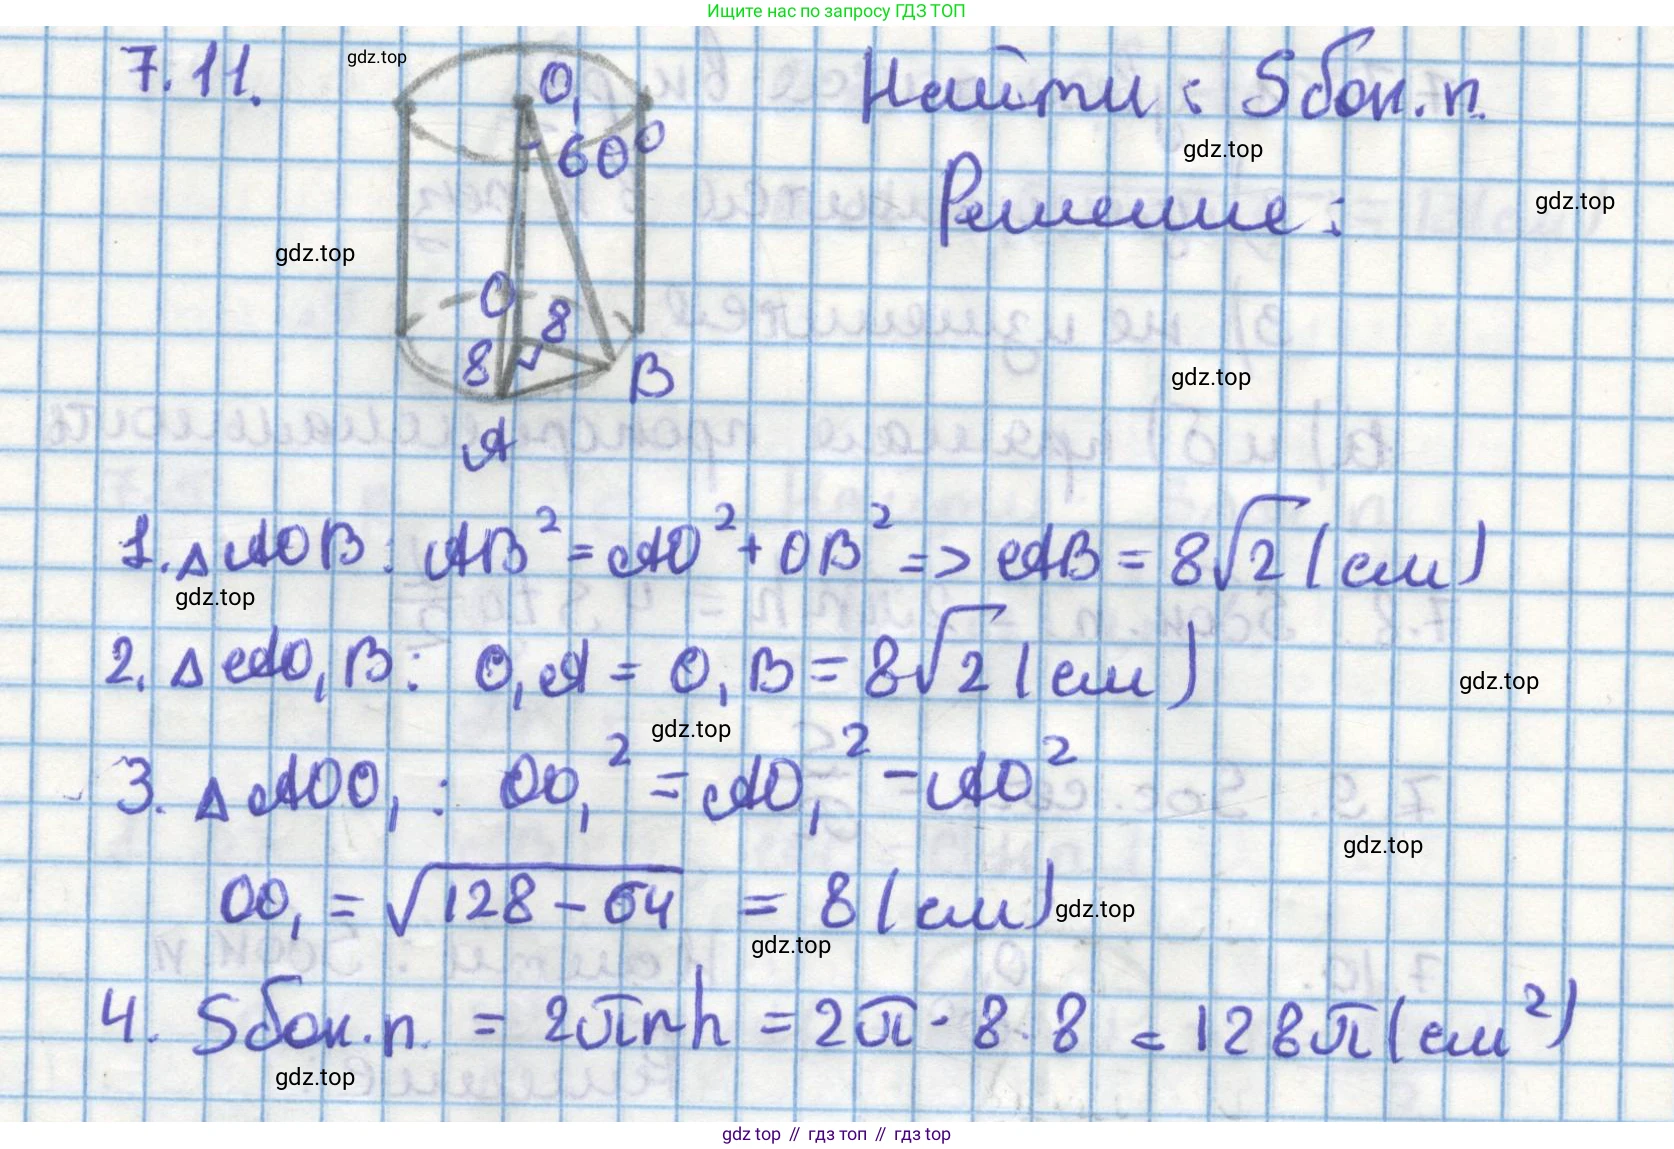 Ищите нас по запросу ГДЗ ТОП
7.11.
gdz.top
O₁
60°
Найти : Sбок.п.
gdz.top
Решение :
gdz.top
gdz.top
O
8
8
B
A
gdz.top
1. △AOB : AB² = AO² + OB² => AB = 8√2 (см)
gdz.top
2. △AO₁B : O₁A = O₁B = 8√2 (см)
gdz.top
gdz.top
3. △AOO₁ : OO₁² = AO₁² - AO²
gdz.top
OO₁ = √128-64 = 8 (см)
gdz.top
gdz.top
4. Sбок.п. = 2πrh = 2π · 8 · 8 = 128π (см²)
gdz.top
gdz top // гдз топ // гдз top